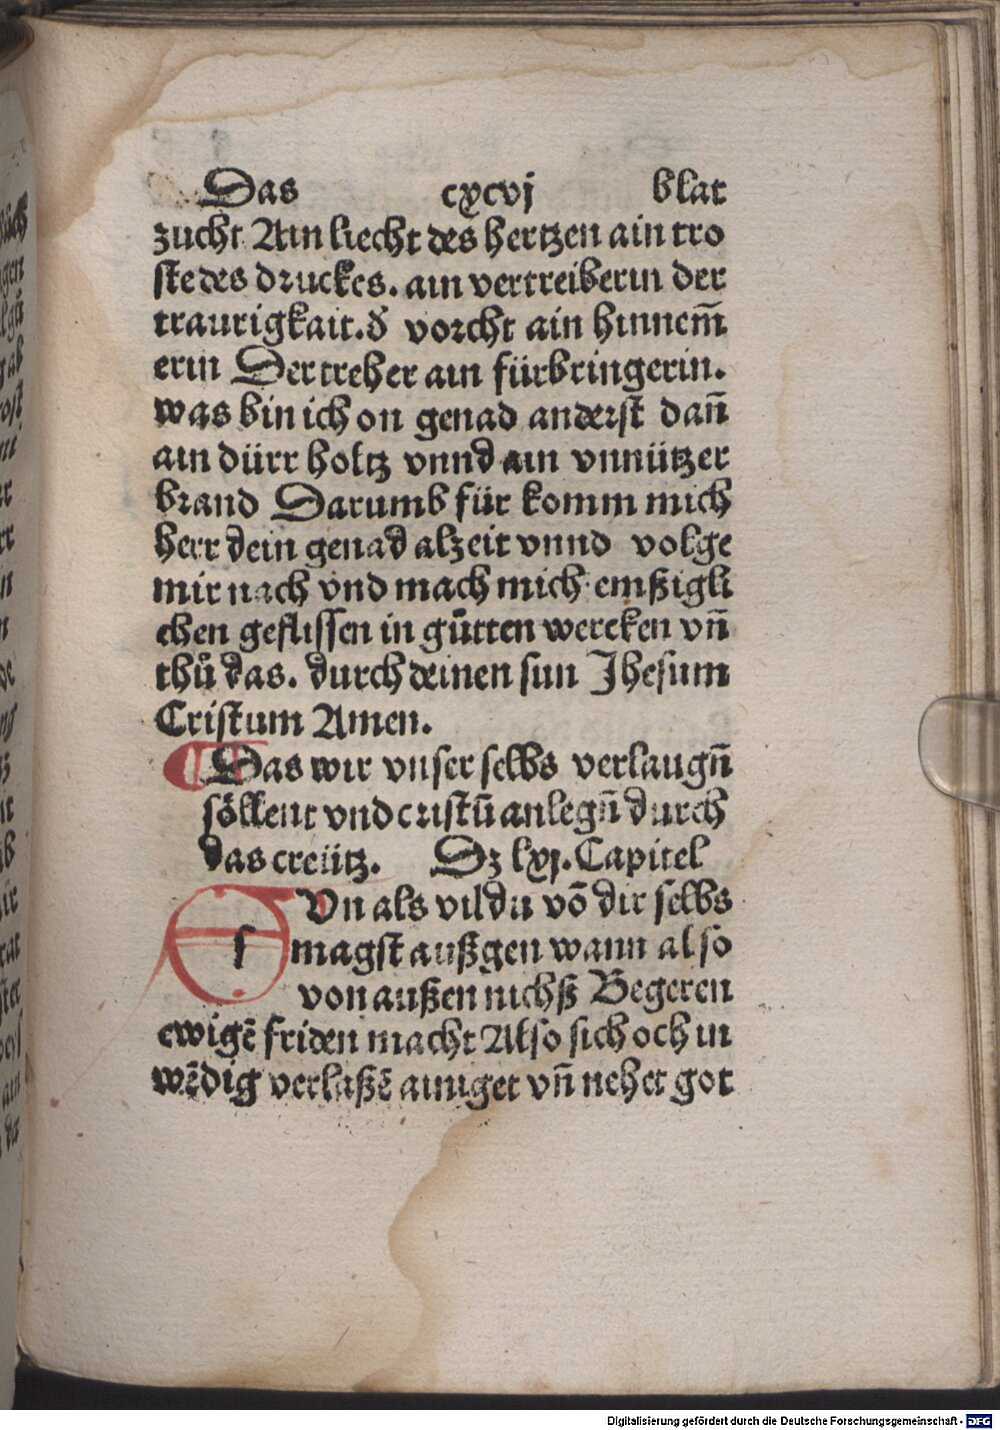 Das cxcvj blat
zucht Ain liecht des hertzen ain tro
ste des druckes. ain vertreiberin der
traurigkait. đ vorcht ain hinnem̄
erin Der treher ain fürbringerin.
was bin ich on genad anderst dañ
ain dürr holtz vnnd ain vnnützer
brand Darumb für komm mich
herr dein genad alzeit vnnd volge
mir nach vnd mach mich emßigli
chen geflissen in gůtten wercken vñ
thů das. durch deinen sun Jhesum
Cristum Amen.
Das wir vnser selbs verlaugñ
söllent vnd cristū anlegñ durch
das creütz. Dz lxj. Capitel
s Vn als vil du võ dir selbs
magst außgen wann also
von außen nichß Begeren
ewigē friden macht Also sich och in
wēdig verlaßē ainiget vñ nehet got
Digitalisierung gefördert durch die Deutsche Forschungsgemeinschaft - DFG